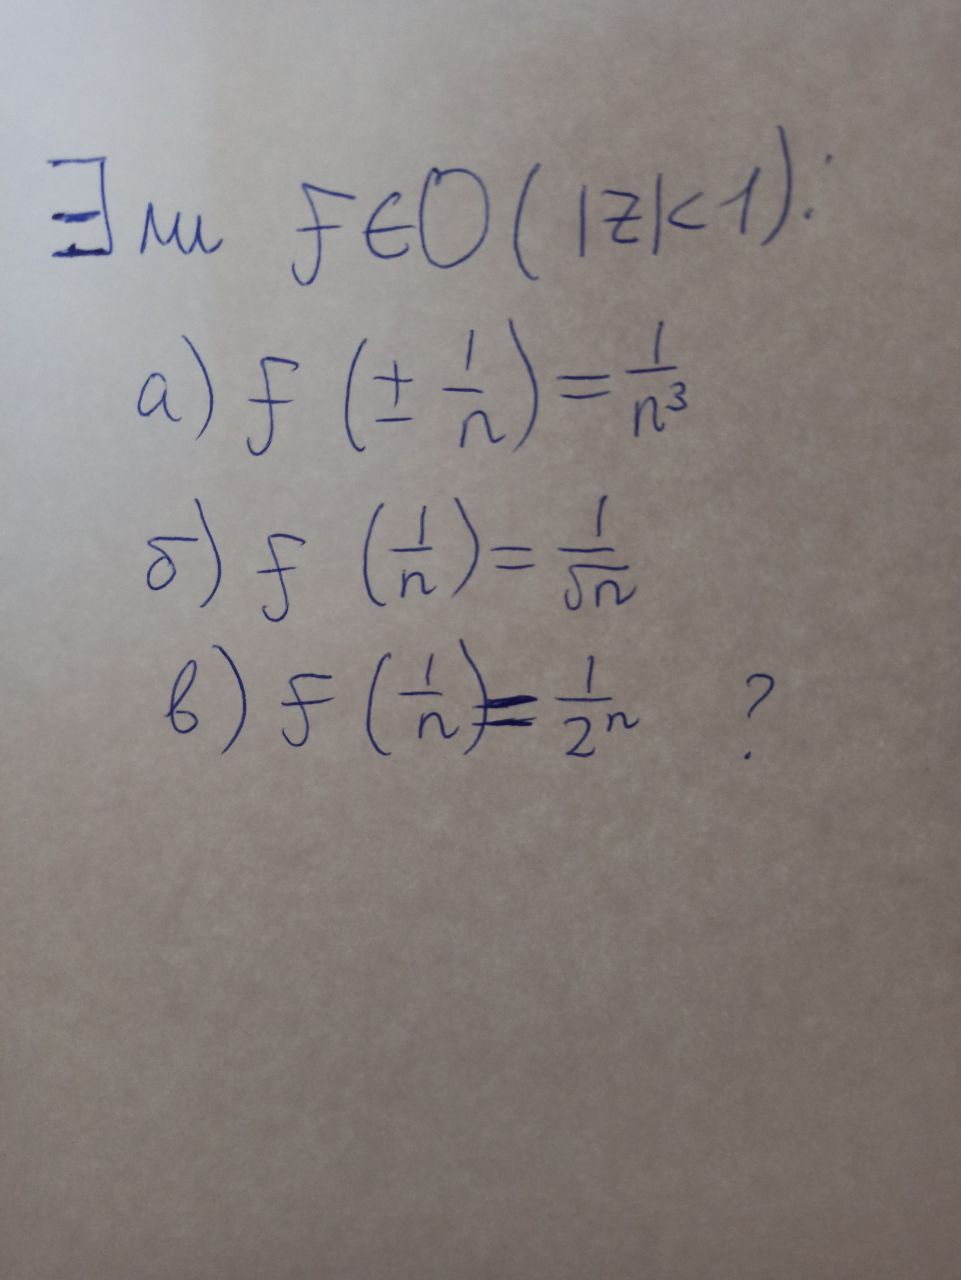 ∃ ли f∈O(|z|<1):
а) f(±1/n)=1/n³
б) f(1/n)=1/√n
в) f(1/n)=1/2ⁿ ?